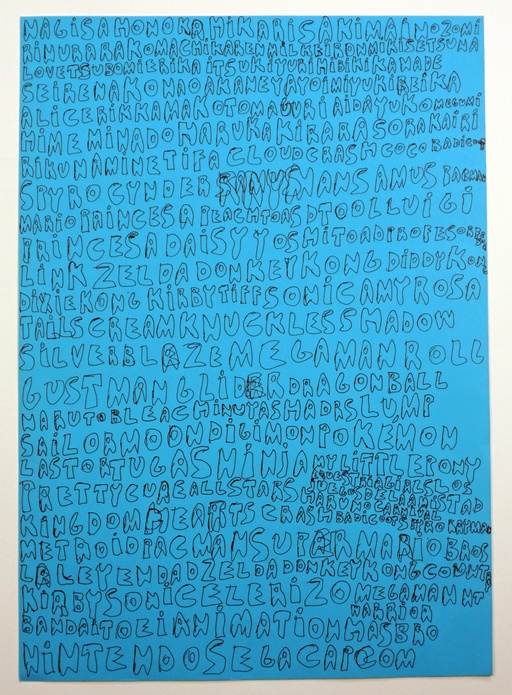 NAGISAHONOKAHIKARISAKIMAINOZOMI
RINURARAKOMACHIKARENMILKEIRONMIKISETSUNA
LOVETSUBOMIERIKAITSUKIYURIHIBIKIKANADE
SEIRENAKONAOAKANEYAYOIMIYUKIREIKA
ALICERIKKAMAKOTOMAGURIAIDAYUKOMEGUMI
HIMEMINADOHARUKAKIRARASORAKAIRI
RIKUNAMINETIFACLOUDCRASHCOCOBADICOOT
SPYROCYNDERMANSAMUSPACMAN
MARIOPRINCESAPEACHTOADTOOLLUIGI
PRINCESADAISYYOSHITOADPROFESOR
LINKZELDADONKEYKONGDIDDYKONG
DIXIEKONGKIRBYTIFFSONICAMYROSA
TAILSCREAMKNUCKLESSHADOW
SILVERBLAZEMEGAMANROLL
GUSTMANGLIDERDRAGONBALL
NARUTOBLEACHINUYASHADRSLUMP
SAILORMOONDIGIMONPOKEMON
LASTORTUGASNINJAMYLITTLEPONY
PRETTYCUREALLSTARSEQUESTRIAGIRLSLOS
KINGDOMHEARTSCRASHBADICOOTSPYRO
METROIDPACMANSUPERMARIOBROS
LALEYENDADZELDADONKEYKONGCOUNTR
KIRBYSONICELERIZOMEGAMANNT
WARRIOR
BANDAITOEIANIMATIONHASBRO
NINTENDOSEGACAPCOM